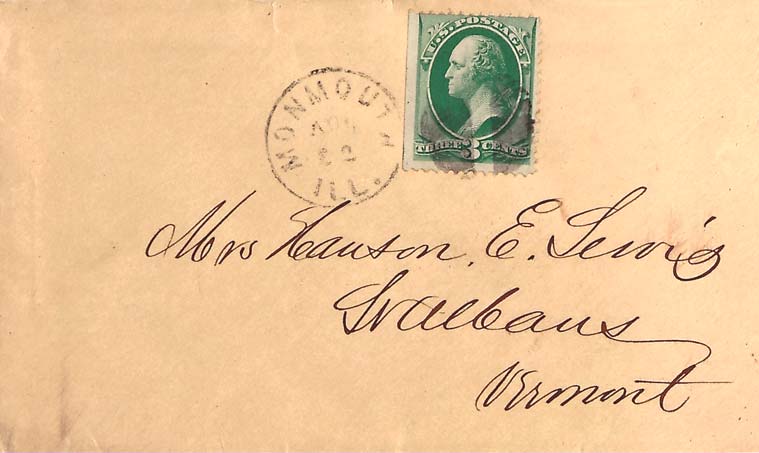 U.S. POSTAGE
THREE 3 CENTS
MONMOUTH
ILL.
Mrs Hanson. E. Lewis
St Albans
Vermont